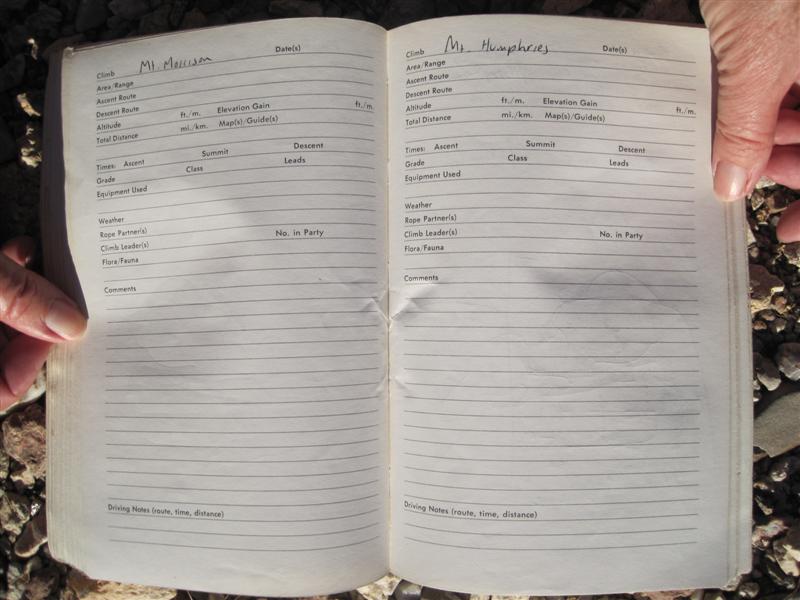 Climb Mt. Morrison Date(s)
Area/Range
Ascent Route
Descent Route
Altitude ft./m. Elevation Gain ft./m.
Total Distance mi./km. Map(s)/Guide(s)
Times: Ascent Summit Descent
Grade Class Leads
Equipment Used
Weather
Rope Partner(s)
Climb Leader(s) No. in Party
Flora/Fauna
Comments
Driving Notes (route, time, distance)
Climb Mt. Humphries Date(s)
Area/Range
Ascent Route
Descent Route
Altitude ft./m. Elevation Gain ft./m.
Total Distance mi./km. Map(s)/Guide(s)
Times: Ascent Summit Descent
Grade Class Leads
Equipment Used
Weather
Rope Partner(s)
Climb Leader(s) No. in Party
Flora/Fauna
Comments
Driving Notes (route, time, distance)